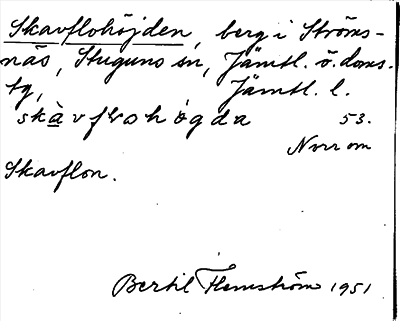 Skavflohöjden, berg i Ströms-
näs, Stuguns sn, Jämtl. ö. doms.
tg, Jämtl. l.
skàvflohògda 53.
Norr om
Skavflon.
Bertil Flemström 1951